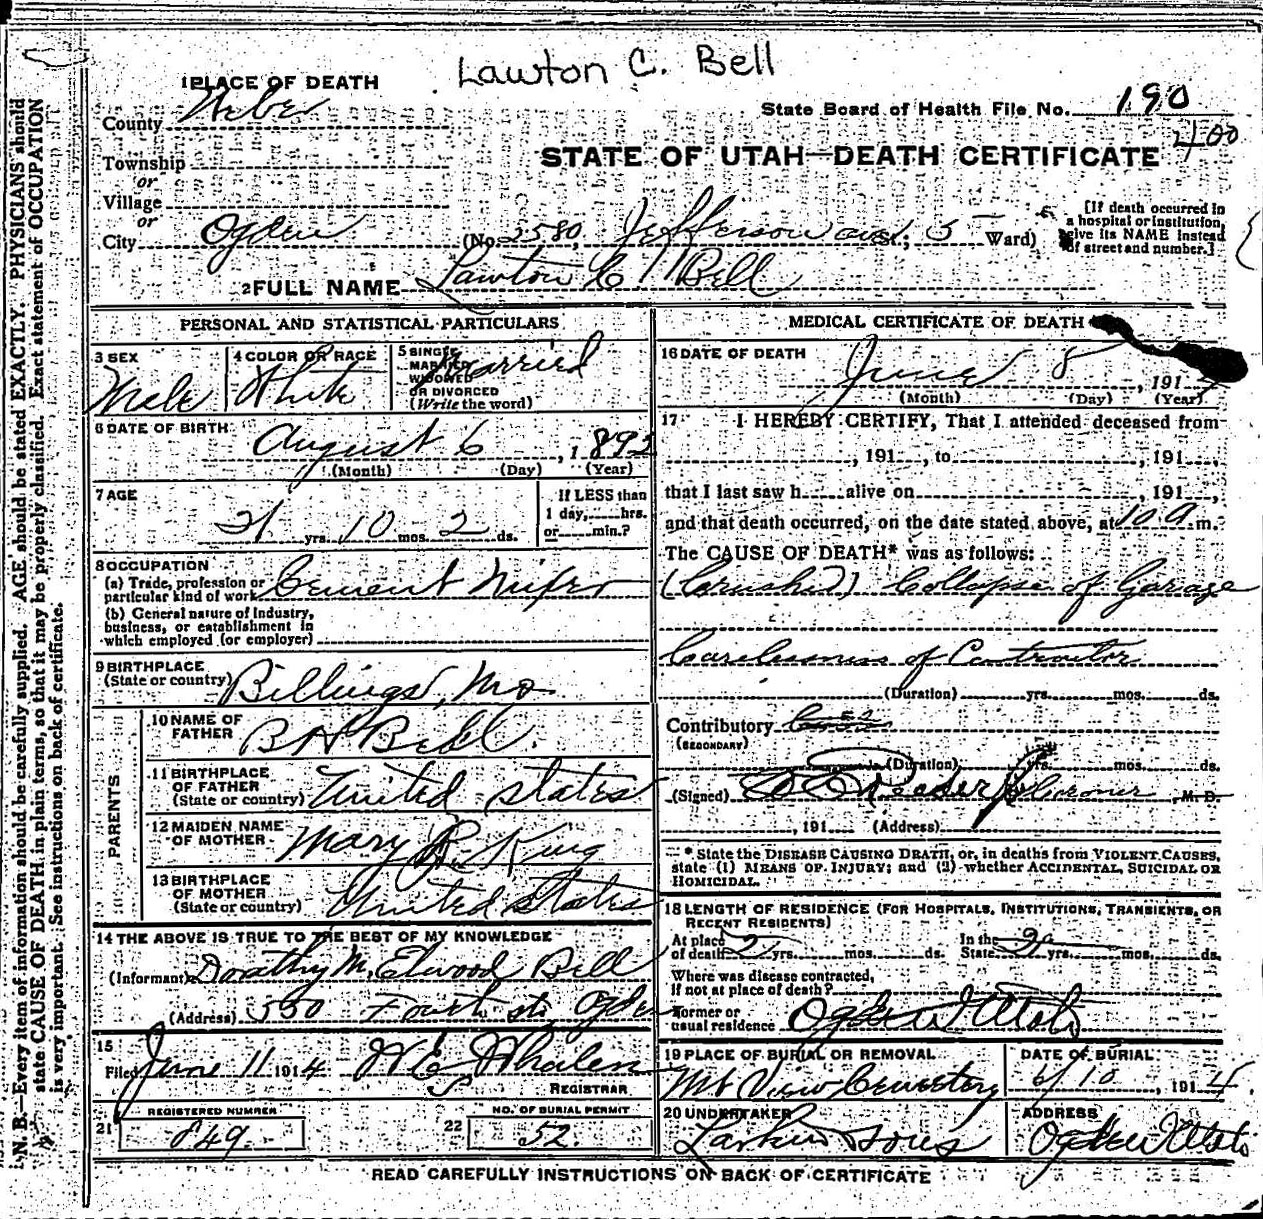 Lawton C. Bell
1 PLACE OF DEATH
State Board of Health File No. 190
County Weber
400
STATE OF UTAH—DEATH CERTIFICATE
Township
or
Village
or
City Ogden (No. 2580, Jefferson ave St.; 5 Ward)
[If death occurred in
a hospital or institution,
give its NAME instead
of street and number.]
2 FULL NAME Lawton C. Bell
PERSONAL AND STATISTICAL PARTICULARS
3 SEX
Male
4 COLOR OR RACE
White
5 SINGLE
MARRIED
WIDOWED
OR DIVORCED
(Write the word)
Married
6 DATE OF BIRTH
August 6, 1892
(Month) (Day) (Year)
7 AGE
21 yrs. 10 mos. 2 ds.
If LESS than
1 day, hrs.
or min.?
8 OCCUPATION
(a) Trade, profession or
particular kind of work Cement
(b) General nature of Industry,
business, or establishment in
which employed (or employer)
9 BIRTHPLACE
(State or country) Billings, Mo
PARENTS
10 NAME OF
FATHER B H Bell.
11 BIRTHPLACE
OF FATHER
(State or country) United States
12 MAIDEN NAME
OF MOTHER Mary B. King
13 BIRTHPLACE
OF MOTHER
(State or country) United States
14 THE ABOVE IS TRUE TO THE BEST OF MY KNOWLEDGE
(Informant) Dorathy M. Elwood Bell
(Address) 550 Fourth st. Ogden
15
Filed June 11 1914 W E Whalen
REGISTRAR
REGISTERED NUMBER
21 849.
NO. OF BURIAL PERMIT
22 52.
MEDICAL CERTIFICATE OF DEATH
16 DATE OF DEATH
June 8, 191
(Month) (Day) (Year)
17 I HEREBY CERTIFY, That I attended deceased from
, 191 , to , 191 ,
that I last saw h alive on , 191 ,
and that death occurred, on the date stated above, at 10 a m.
The CAUSE OF DEATH* was as follows:
(Crushed) Collapse of Garage
Carelessness of Contractor
(Duration) yrs. mos. ds.
Contributory
(SECONDARY)
(Duration) yrs. mos. ds.
(Signed) Reeder Jr Coroner, M. D.
, 191 (Address)
* State the DISEASE CAUSING DEATH, or, in deaths from VIOLENT CAUSES,
state (1) MEANS OF INJURY; and (2) whether ACCIDENTAL, SUICIDAL OR
HOMICIDAL.
18 LENGTH OF RESIDENCE (FOR HOSPITALS, INSTITUTIONS, TRANSIENTS, OR
RECENT RESIDENTS)
At place
of death 2 yrs. mos. ds.
In the
State yrs. mos. ds.
Where was disease contracted,
if not at place of death?
Former or
usual residence Ogden Utah
19 PLACE OF BURIAL OR REMOVAL
Mt View Cemetery
DATE OF BURIAL
6/10, 1914
20 UNDERTAKER
Larkin Sons
ADDRESS
Ogden Utah
READ CAREFULLY INSTRUCTIONS ON BACK OF CERTIFICATE
N. B.—Every item of information should be carefully supplied. AGE should be stated EXACTLY. PHYSICIANS should
state CAUSE OF DEATH in plain terms, so that it may be properly classified. Exact statement of OCCUPATION
is very important. See instructions on back of certificate.